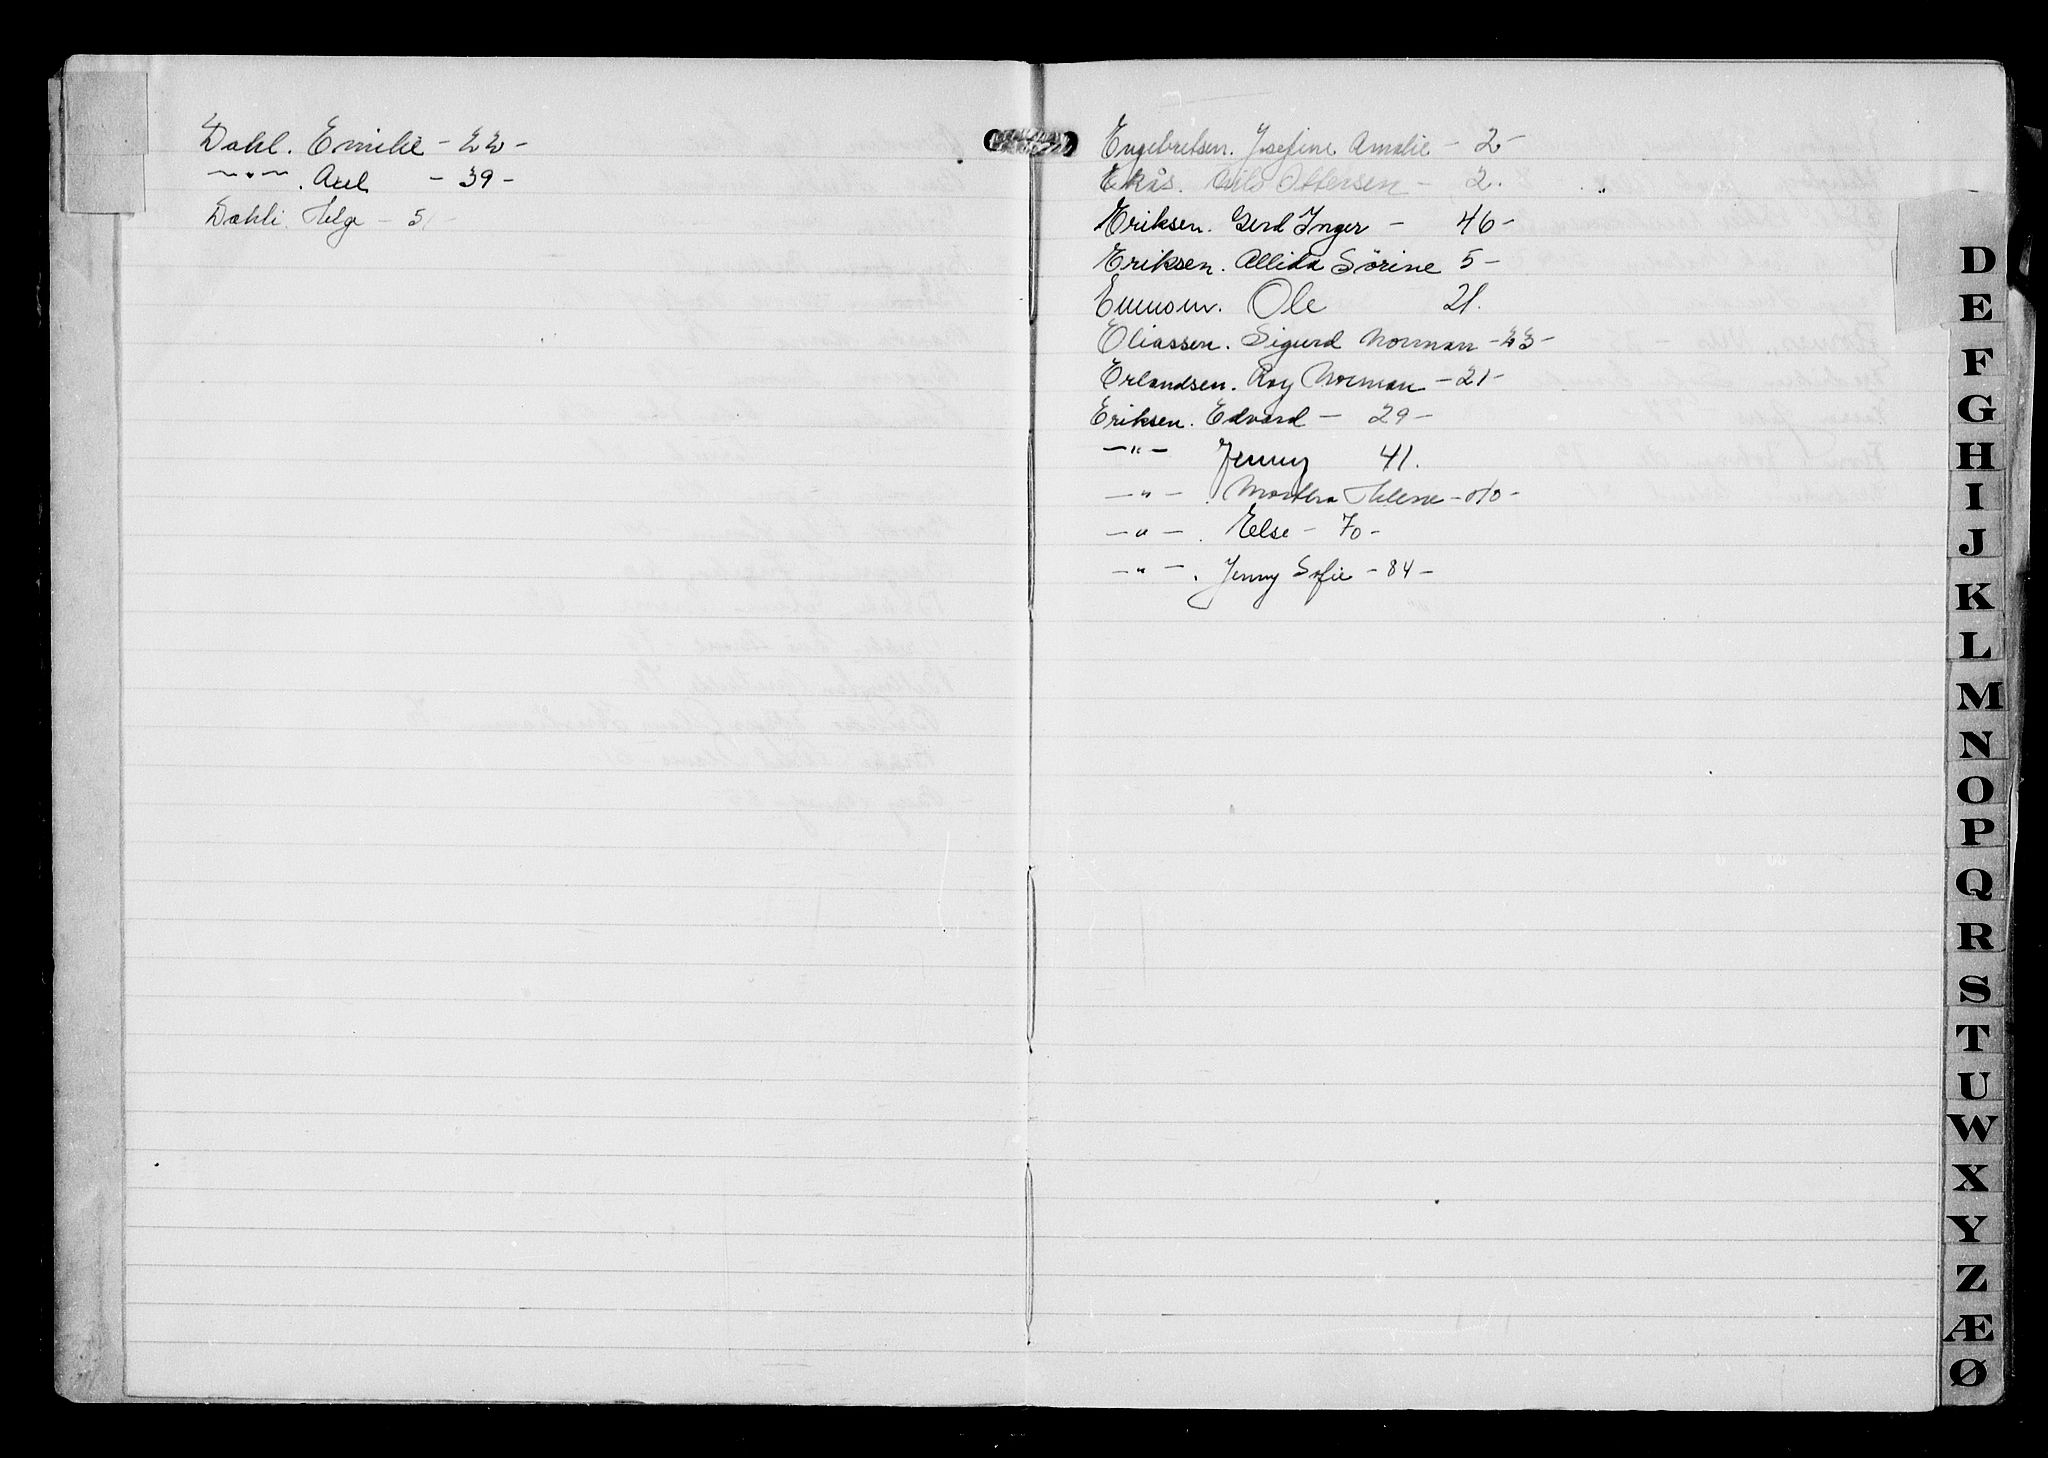 Dahl. Emilie - 22 -
-"-. Axel - 39 -
Dahli. Helge - 51 -
Engebretsen. Josefine Amalie - 2 -
Ekås. Nils Ottersen - 2.
Eriksen. Gerd Inger - 46 -
Eriksen. Allida Sörine 5 -
Ole 21.
Eliassen. Sigurd Norman - 23 -
Erlandsen. Roy Norman - 21 -
Eriksen. Edvard - 29 -
-"- Jenny 41.
-"-. Martha Helene -
-"-. Else - 70 -
-"-. Jenny Sofie - 84 -
D
E
F
G
H
I
J
K
L
M
N
O
P
Q
R
S
T
U
W
X
Y
Z
Æ
Ø